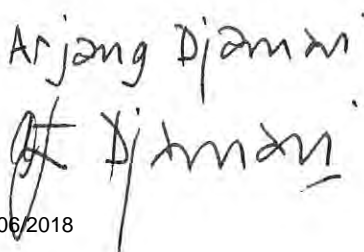 Arjang Djamani
Djamani
06/2018